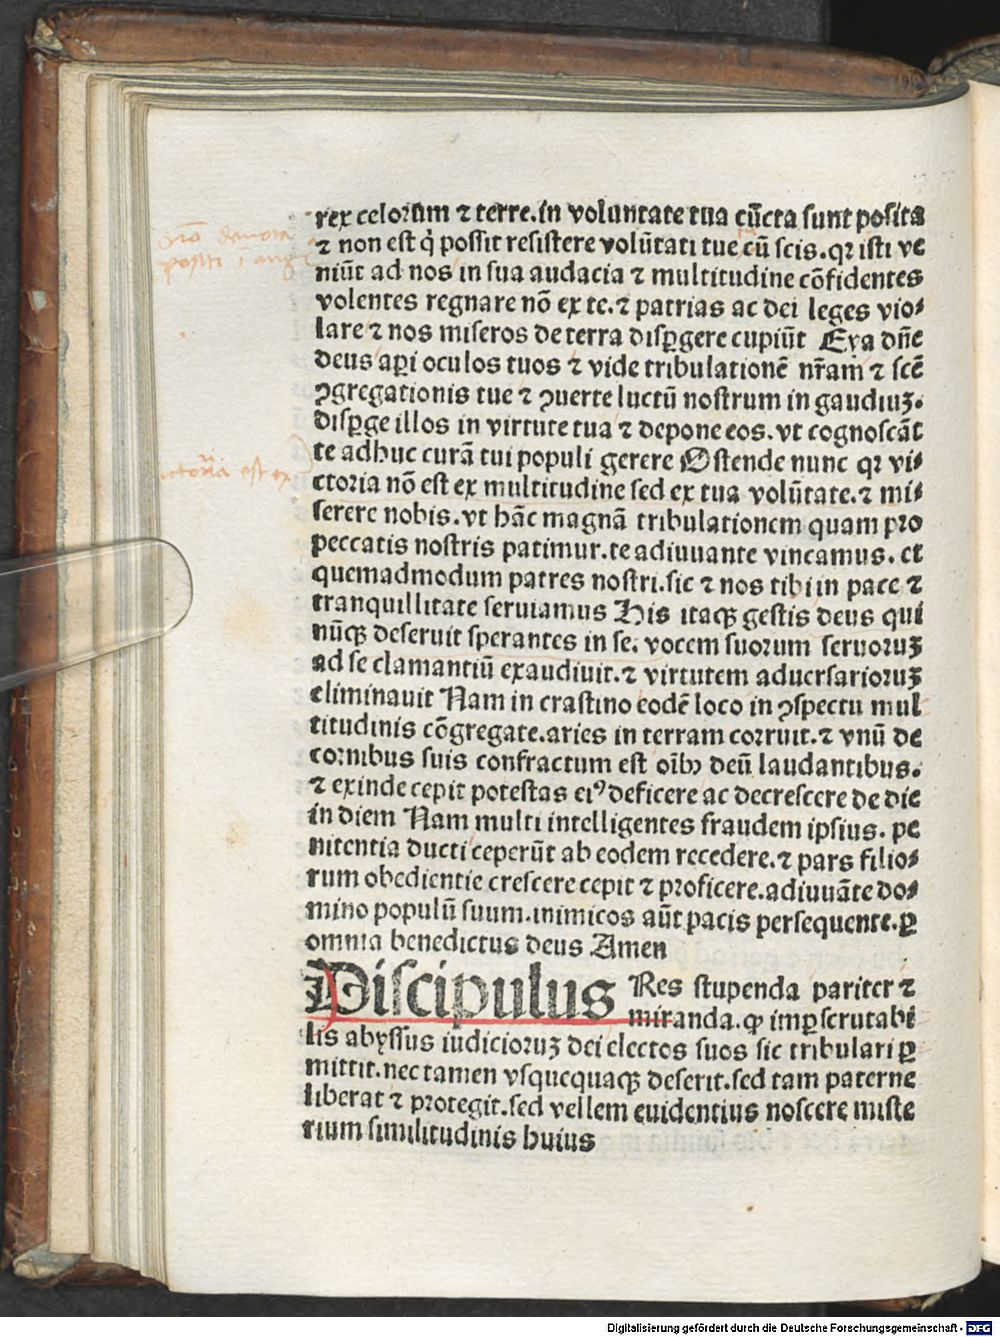 rex celoꝛum ⁊ terre.in voluntate tua cūcta sunt posita
⁊ non est q̇ possit resistere volūtati tue cū scis.qꝛ isti ve
niūt ad nos in sua audacia ⁊ multitudine cōfidentes
volentes regnare nō ex te.⁊ patrias ac dei leges vio⸗
lare ⁊ nos miseros de terra disꝑgere cupiūt Eya dn̄e
deus aꝑi oculos tuos ⁊ vide tribulationē nr̄am ⁊ scē
ꝯgregationis tue ⁊ ꝯuerte luctū nostrum in gaudiuꝫ.
disꝑge illos in virtute tua ⁊ depone eos.vt cognoscāt
te adhuc curā tui populi gerere Ostende nunc qꝛ vi⸗
ctoria nō est ex multitudine sed ex tua volūtate.⁊ mi⸗
serere nobis.vt hāc magnā tribulationem quam pꝛo
peccatis nostris patimur.te adiuuante vincamus. et
quemadmodum patres nostri.sic ⁊ nos tibi in pace ⁊
tranquillitate seruiamus His itaqꝫ gestis deus qui
nūqꝫ deseruit sperantes in se. vocem suoꝛum seruoꝛuꝫ
ad se clamantiū exaudiuit.⁊ virtutem aduersarioꝛuꝫ
eliminauit Nam in crastino eodē loco in ꝯspectu mul
titudinis cōgregate.aries in terram coꝛruit.⁊ vnū de
coꝛnibus suis confractum est oībꝫ deū laudantibus.
⁊ exinde cepit potestas eiꝰ deficere ac decrescere de die
in diem Nam multi intelligentes fraudem ipsius. pe
nitentia ducti ceperūt ab eodem recedere.⁊ pars filio⸗
rum obedientie crescere cepit ⁊ pꝛoficere.adiuuāte do⸗
mino populū suum.inimicos aūt pacis persequente.ꝑ
omnia benedictus deus Amen
Discipulus Res stupenda pariter ⁊
miranda.ꝙ imꝑscrutabi
lis abyssus iudicioꝛuꝫ dei electos suos sic tribulari ꝑ
mittit.nec tamen vsquequaqꝫ deserit.sed tam paterne
liberat ⁊ pꝛotegit.sed vellem euidentius noscere miste
rium similitudinis huius
Digitalisierung gefördert durch die Deutsche Forschungsgemeinschaft - DFG